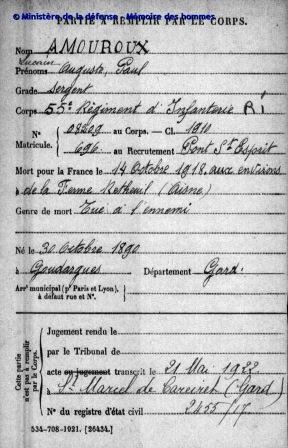 © Ministère de la défense - Mémoire des hommes
PARTIE À REMPLIR PAR LE CORPS.
Nom AMOUROUX
Prénoms Auguste, Paul
Grade Sergent
Corps 55e Régiment d'Infanterie RI
N° 03209 au Corps. — Cl. 1910
Matricule. 696 au Recrutement Pont St Esprit
Mort pour la France le 14 Octobre 1918, aux environs
à de la Ferme Retheuil (Aisne)
Genre de mort Tué à l'ennemi
Né le 30 Octobre 1890
à Goudargues Département Gard.
Arrt municipal (pr Paris et Lyon),
à défaut rue et N°.
Cette partie
n'est pas à remplir
par le Corps.
Jugement rendu le
par le Tribunal de
acte ou jugement transcrit le 21 Mai 1922
à St Marcel de Careiret (Gard)
N° du registre d'état civil 2455/17
534-708-1921. [26434.]